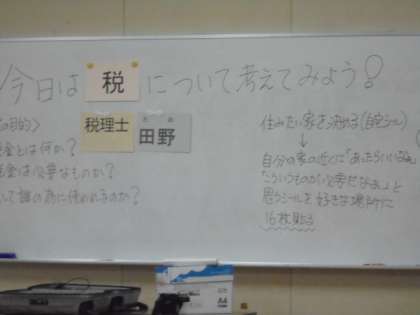 今日は 税 について考えてみよう!
の目的>
税理士 田野
税金とは何か?
税金は必要なものか?
して誰の為に使われるのか?
住みたい家を決める(自宅シール)
↓
自分の家の近くに「あったらいいなぁ」
「こういうものがいると幸せだなぁ」と
思うシールを好きな場所に
16枚貼る
A4